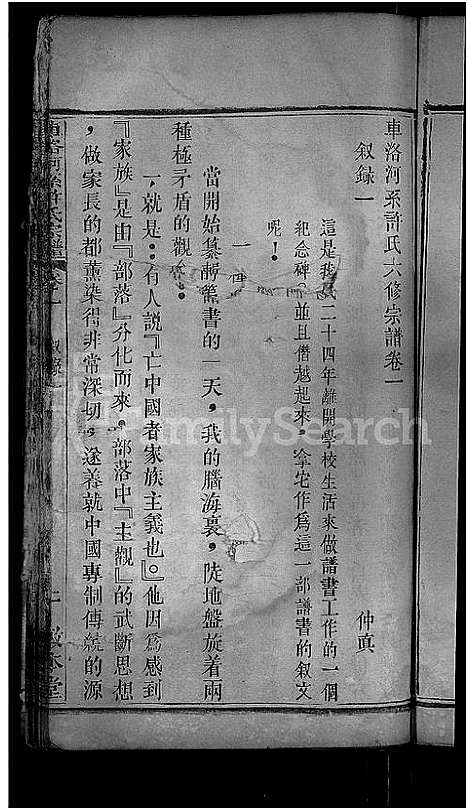 車洛河系許氏六修宗譜卷一
叙錄一
仲頤
這是我民二十四年離開學校生活來做譜書工作的一個
紀念碑，並且僭越起來，拿它作爲這一部譜書的叙文
呢！
一
當開始纂輯舊書的一天，我的腦海裏，陡地盤旋着兩
種極矛盾的觀念：
一，就是：有人說『亡中國者家族主義也。』他因爲感到
『家族』是由『部落』分化而來，部落中『主觀』的武斷思想
，做家長的都薰染得非常深切，遂養就中國專制傳統的源
車洛河系許氏宗譜
卷一
叙錄
一
堂
FamilySearch